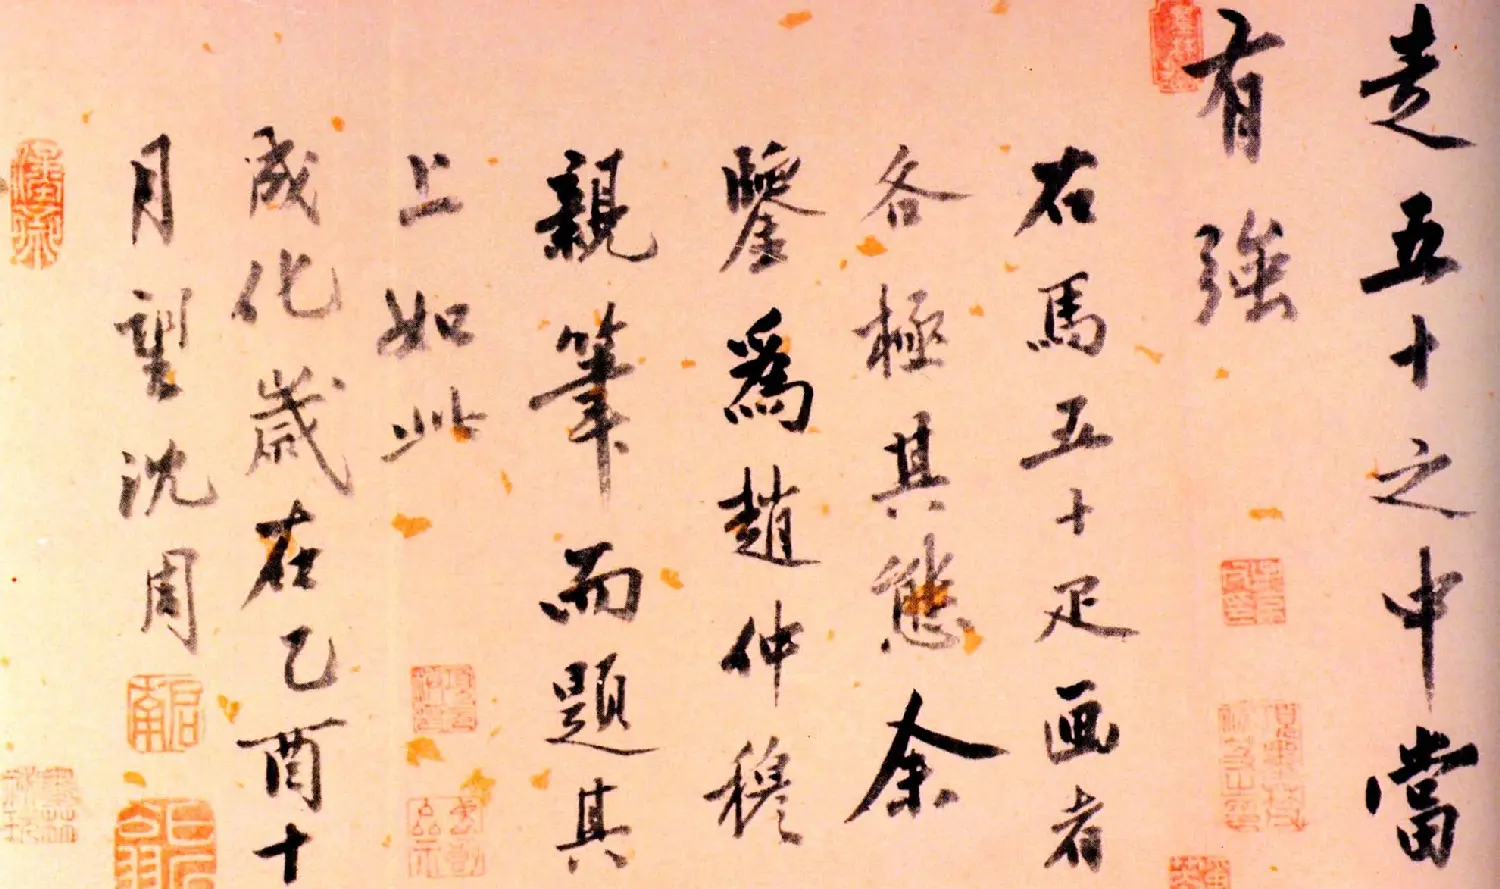 走五十之中當
有強
右馬五十疋画者
各極其態余
鑒為趙仲穆
親筆而題其
上如此
成化歲在乙酉十
月望沈周
啟南